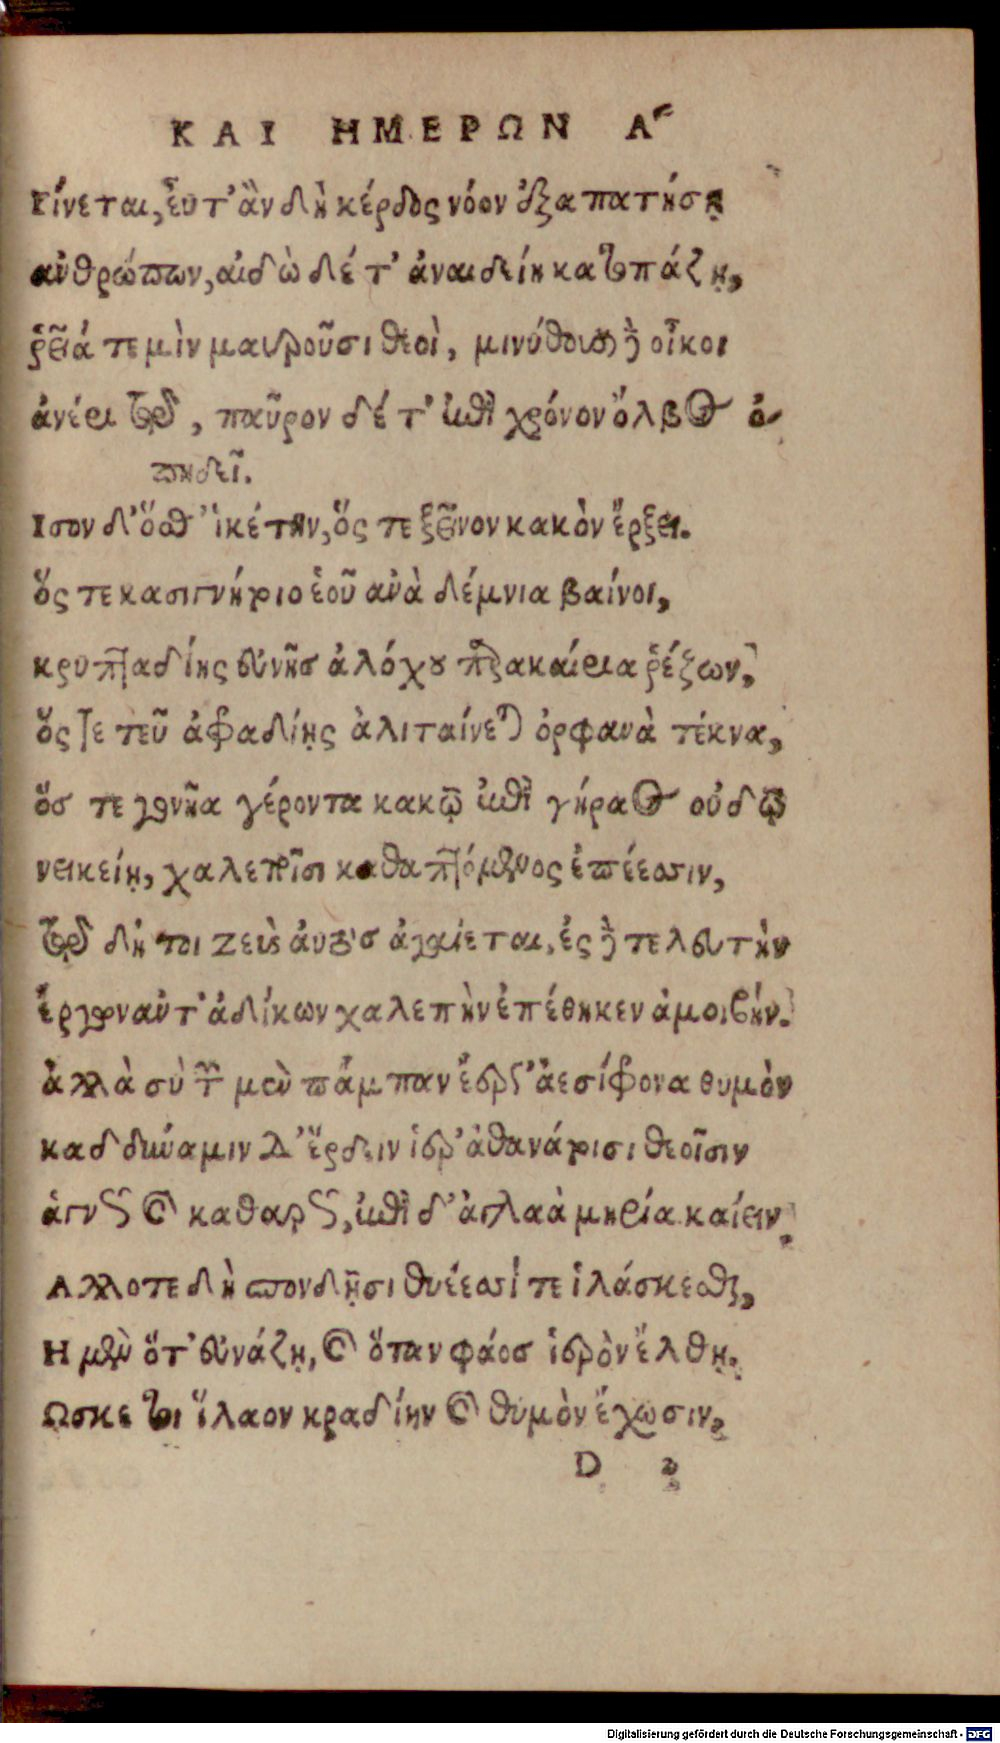 ΚΑΙ ΗΜΕΡΩΝ Α
Γίνεται, εὖτ' ἂν δὴ κέρδος νόον ἐξαπατήσῃ
ἀνθρώπων, αἰδὼ δέ τ' ἀναιδείη κατοπάζῃ,
ῥεῖά τε μὶν μαυροῦσι θεοὶ, μινύθουσι δὲ οἶκοι
ἀνέρι τῷ, παῦρον δέ τ' ἐπὶ χρόνον ὄλβος ὀ-
πηδεῖ.
Ισον δ' ὅσθ' ἱκέτην, ὅς τε ξεῖνον κακὸν ἔρξει.
ὅς τε κασιγνήτοιο ἑοῦ ἀνὰ δέμνια βαίνοι,
κρυπταδίης εὐνῆσ ἀλόχου παρακαίρια ῥέζων,
ὅς τε τεῦ ἀφραδίῃς ἀλιταίνεται ὀρφανὰ τέκνα,
ὅσ τε γονῆα γέροντα κακῷ ἐπὶ γήραος οὐδῷ
νεικείῃ, χαλεποῖσι καθαπτόμενος ἐπέεσσιν,
τῷ δή τοι Ζεὺς ἀυτὸσ ἀγαίεται, ἐς δὲ τελευτὴν
ἔργων ἀντ' ἀδίκων χαλεπὴν ἐπέθηκεν ἀμοιβήν.
ἀλλὰ σὺ τῶν μὲν πάμπαν ἔεργ' ἀεσίφρονα θυμὸν
καδ δύναμιν δ' ἔρδειν ἱερ' ἀθανάτοισι θεοῖσιν
ἁγνῶς καὶ καθαρῶς, ἐπὶ δ' ἀγλαὰ μηρία καίειν,
Αλλοτε δὴ σπονδῇσι θυέεσσί τε ἱλάσκεσθαι,
Η μὲν ὅτ' εὐνάζῃ, καὶ ὅταν φάοσ ἱερὸν ἔλθῃ.
Ωσκε τοι ἵλαον κραδίην καὶ θυμὸν ἔχωσιν,
D 2
Digitalisierung gefördert durch die Deutsche Forschungsgemeinschaft - DFG